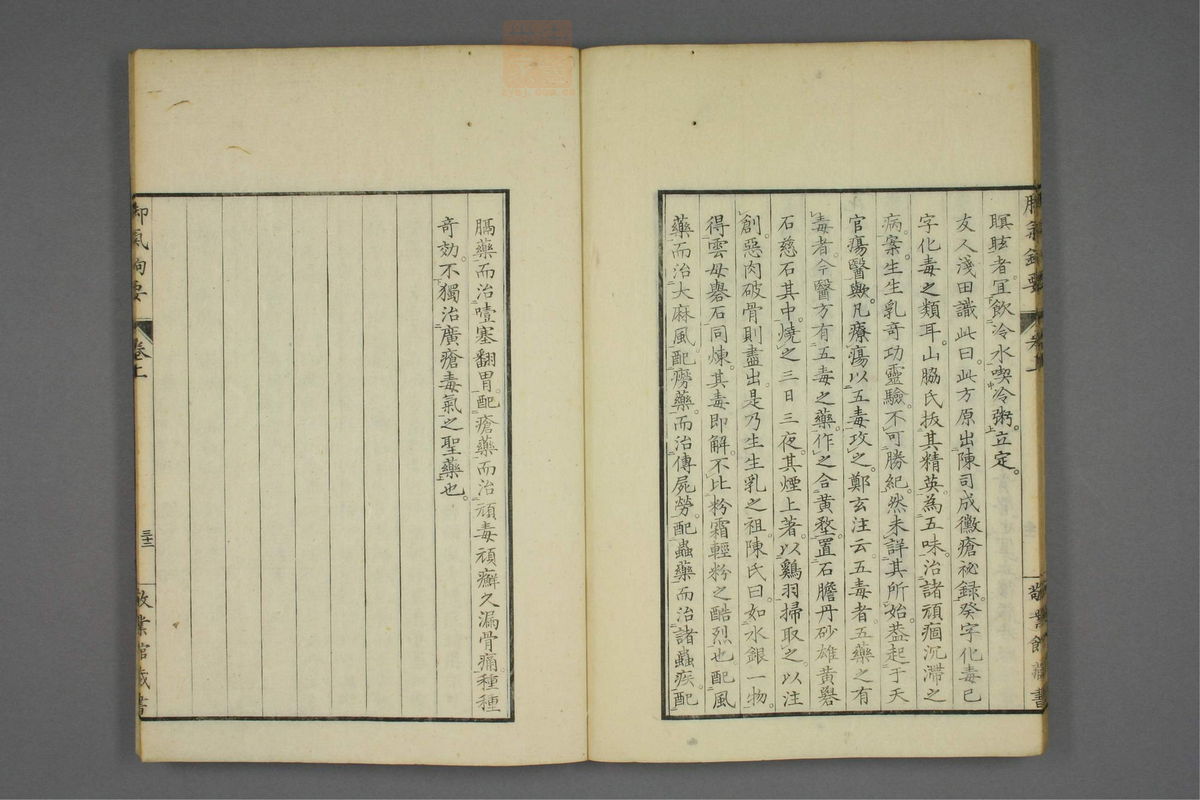 瞑眩者。宜飲冷水。喫冷粥。立定。
友人淺田識此曰。此方原出陳司成黴瘡祕録。癸字化毒已
字化毒之類耳。山脇氏拔其精英。為五味。治諸頑痼沉滯之
病案。生生乳奇功靈驗。不可勝紀。然未詳其所始。葢起于天
官瘍醫歟。凡療瘍以五毒攻之。鄭玄注云。五毒者。五藥之有
毒者。今醫方有五毒之藥。作之合黃堥。置石膽丹砂雄黃礜
石慈石其中。燒之三日三夜。其煙上著。以鷄羽掃取之。以注
創。惡肉破骨則盡出。是乃生生乳之祖。陳氏曰。如水銀一物。
得雲母礜石同煉。其毒即解。不比粉霜輕粉之酷烈也。配風
藥而治大麻風。配癆藥。而治傳屍勞。配蟲藥而治諸蟲疾。配
膈藥而治噎塞翻胃。配瘡藥而治頑毒頑癬久漏骨痛。種種
奇効。不獨治廣瘡毒氣之聖藥也。
卷上
三十二